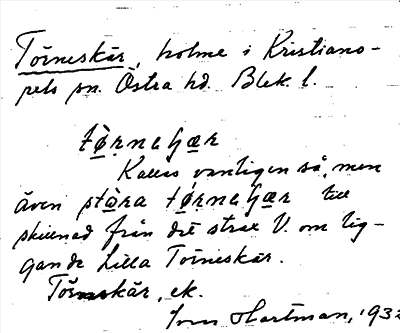 Törneskär, holme i Kristiano-
pels sn. Östra hd. Blek. l.
tø̱rnəʃæ̱r
Kallas vanligen så, men
även sto̱ra tø̱rnəʃæ̱r till
skillnad från det strax V. om lig-
gande Lilla Törneskär.
Törneskär, ek.
Sven Hartman, 193